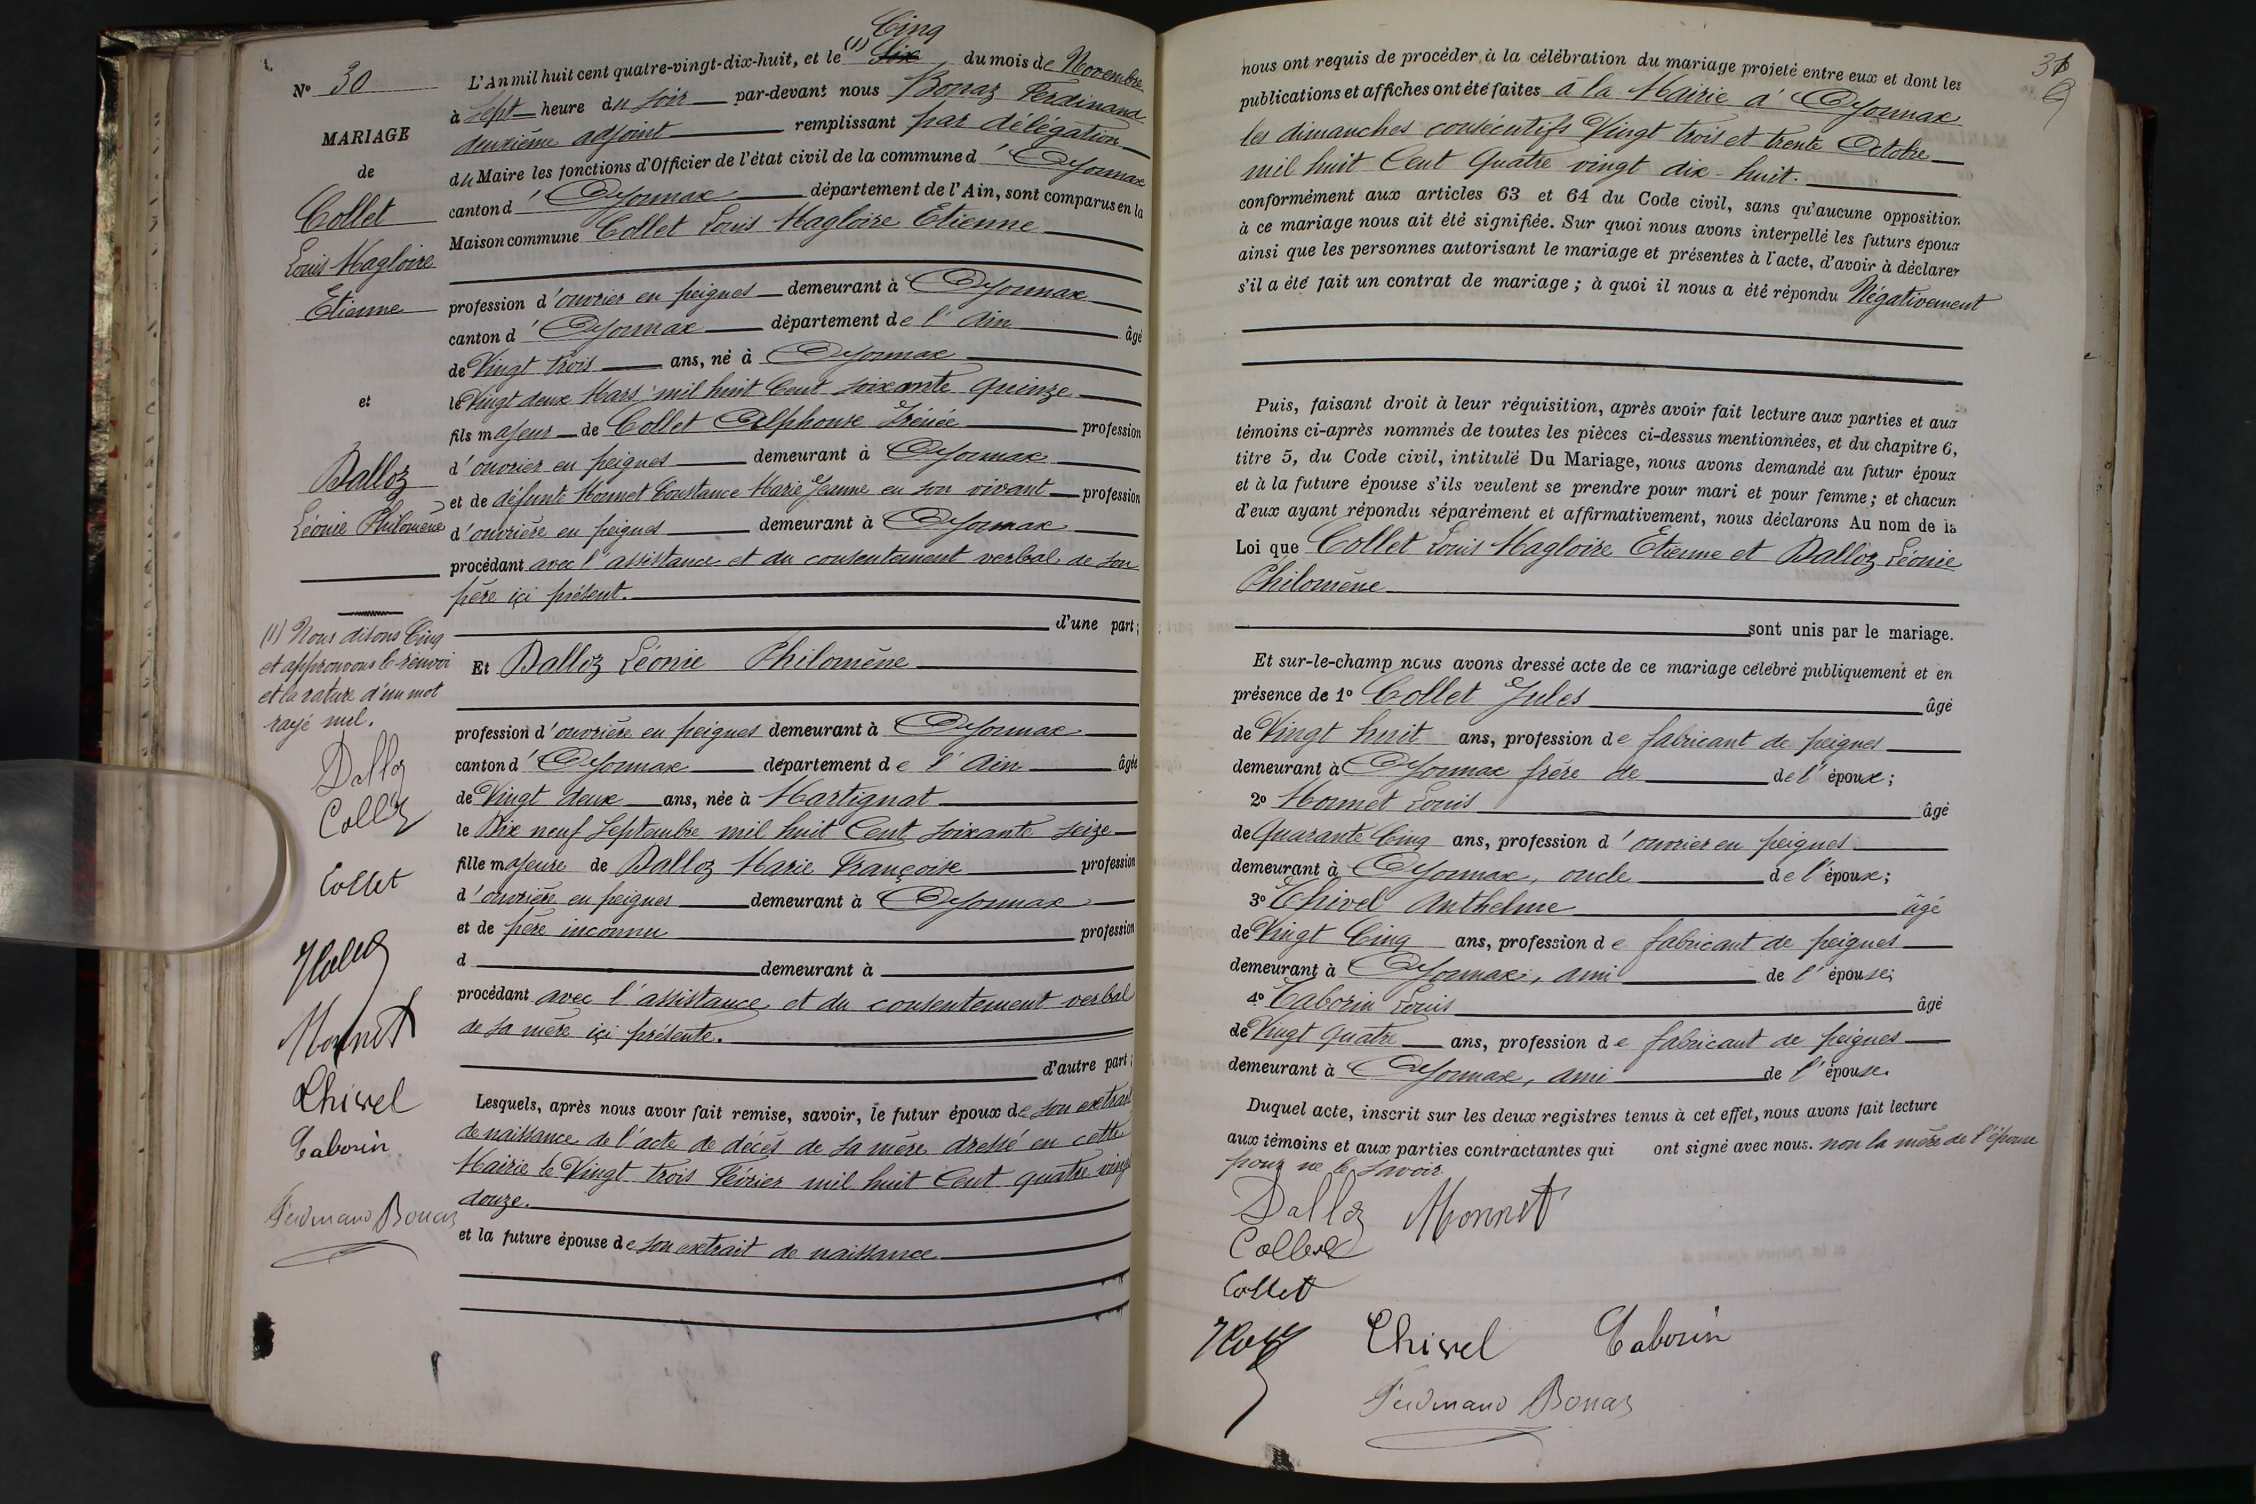 N° 30
MARIAGE
de
Collet
Louis Magloire
Etienne
et
Dalloz
Léonie Philomène
(1) Nous disons Cinq
et approuvons le renvoi
et la rature d'un mot
rayé nul.
Dalloz
Collet
Monnet
Chivel
Taborin
Ferdinand Bonaz
Cinq
L'An mil huit cent quatre-vingt-dix-huit, et le (1) Six du mois de Novembre
à Sept heure du soir par-devant nous Bonaz Ferdinand
deuxième adjoint remplissant par délégation
du Maire les fonctions d'Officier de l'état civil de la commune d'Oyonnax
canton d'Oyonnax département de l'Ain, sont comparus en la
Maison commune Collet Louis Magloire Etienne
profession d'ouvrier en peignes demeurant à Oyonnax
canton d'Oyonnax département de l'Ain âgé
de Vingt trois ans, né à Oyonnax
le Vingt deux Mars mil huit Cent soixante quinze
fils majeur de Collet Alphonse Irénée profession
d'ouvrier en peignes demeurant à Oyonnax
et de défunte Monnet Constance Marie Jeanne en son vivant profession
d'ouvrière en peignes demeurant à Oyonnax
procédant avec l'assistance et du consentement verbal de son
père içi présent.
d'une part;
Et Dalloz Léonie Philomène
profession d'ouvrière en peignes demeurant à Oyonnax
canton d'Oyonnax département de l'Ain âgée
de Vingt deux ans, née à Martignat
le Dix neuf Septembre mil huit Cent soixante seize
fille majeure de Dalloz Marie Françoise profession
d'ouvrière en peignes demeurant à Oyonnax
et de père inconnu profession
d demeurant à
procédant avec l'assistance et du consentement verbal
de sa mère içi présente.
d'autre part;
Lesquels, après nous avoir fait remise, savoir, le futur époux de son extrait
de naissance de l'acte de décès de sa mère dressé en cette
Mairie le Vingt trois Février mil huit Cent quatre vingt
douze.
et la future épouse de son extrait de naissance
31
nous ont requis de procéder à la célébration du mariage projeté entre eux et dont les
publications et affiches ont été faites à la Mairie d'Oyonnax
les dimanches consécutifs Vingt trois et trente Octobre
mil huit Cent Quatre vingt dix-huit.
conformément aux articles 63 et 64 du Code civil, sans qu'aucune opposition
à ce mariage nous ait été signifiée. Sur quoi nous avons interpellé les futurs époux
ainsi que les personnes autorisant le mariage et présentes à l'acte, d'avoir à déclarer
s'il a été fait un contrat de mariage; à quoi il nous a été répondu Négativement
Puis, faisant droit à leur réquisition, après avoir fait lecture aux parties et aux
témoins ci-après nommés de toutes les pièces ci-dessus mentionnées, et du chapitre 6,
titre 5, du Code civil, intitulé Du Mariage, nous avons demandé au futur époux
et à la future épouse s'ils veulent se prendre pour mari et pour femme; et chacun
d'eux ayant répondu séparément et affirmativement, nous déclarons Au nom de la
Loi que Collet Louis Magloire Etienne et Dalloz Léonie
Philomène
sont unis par le mariage.
Et sur-le-champ nous avons dressé acte de ce mariage célébré publiquement et en
présence de 1° Collet Jules âgé
de Vingt huit ans, profession de fabricant de peignes
demeurant à Oyonnax frère de de l'époux;
2° Monnet Louis âgé
de Quarante Cinq ans, profession d'ouvrier en peignes
demeurant à Oyonnax, oncle de l'époux;
3° Chivel Anthelme âgé
de Vingt Cinq ans, profession de fabricant de peignes
demeurant à Oyonnax, ami de l'épouse;
4° Taborin Louis âgé
de Vingt quatre ans, profession de fabricant de peignes
demeurant à Oyonnax, ami de l'épouse.
Duquel acte, inscrit sur les deux registres tenus à cet effet, nous avons fait lecture
aux témoins et aux parties contractantes qui ont signé avec nous. non la mère de l'épouse
pour ne le savoir
Dalloz Monnet
Collet
Collet
Chivel Taborin
Ferdinand Bonaz